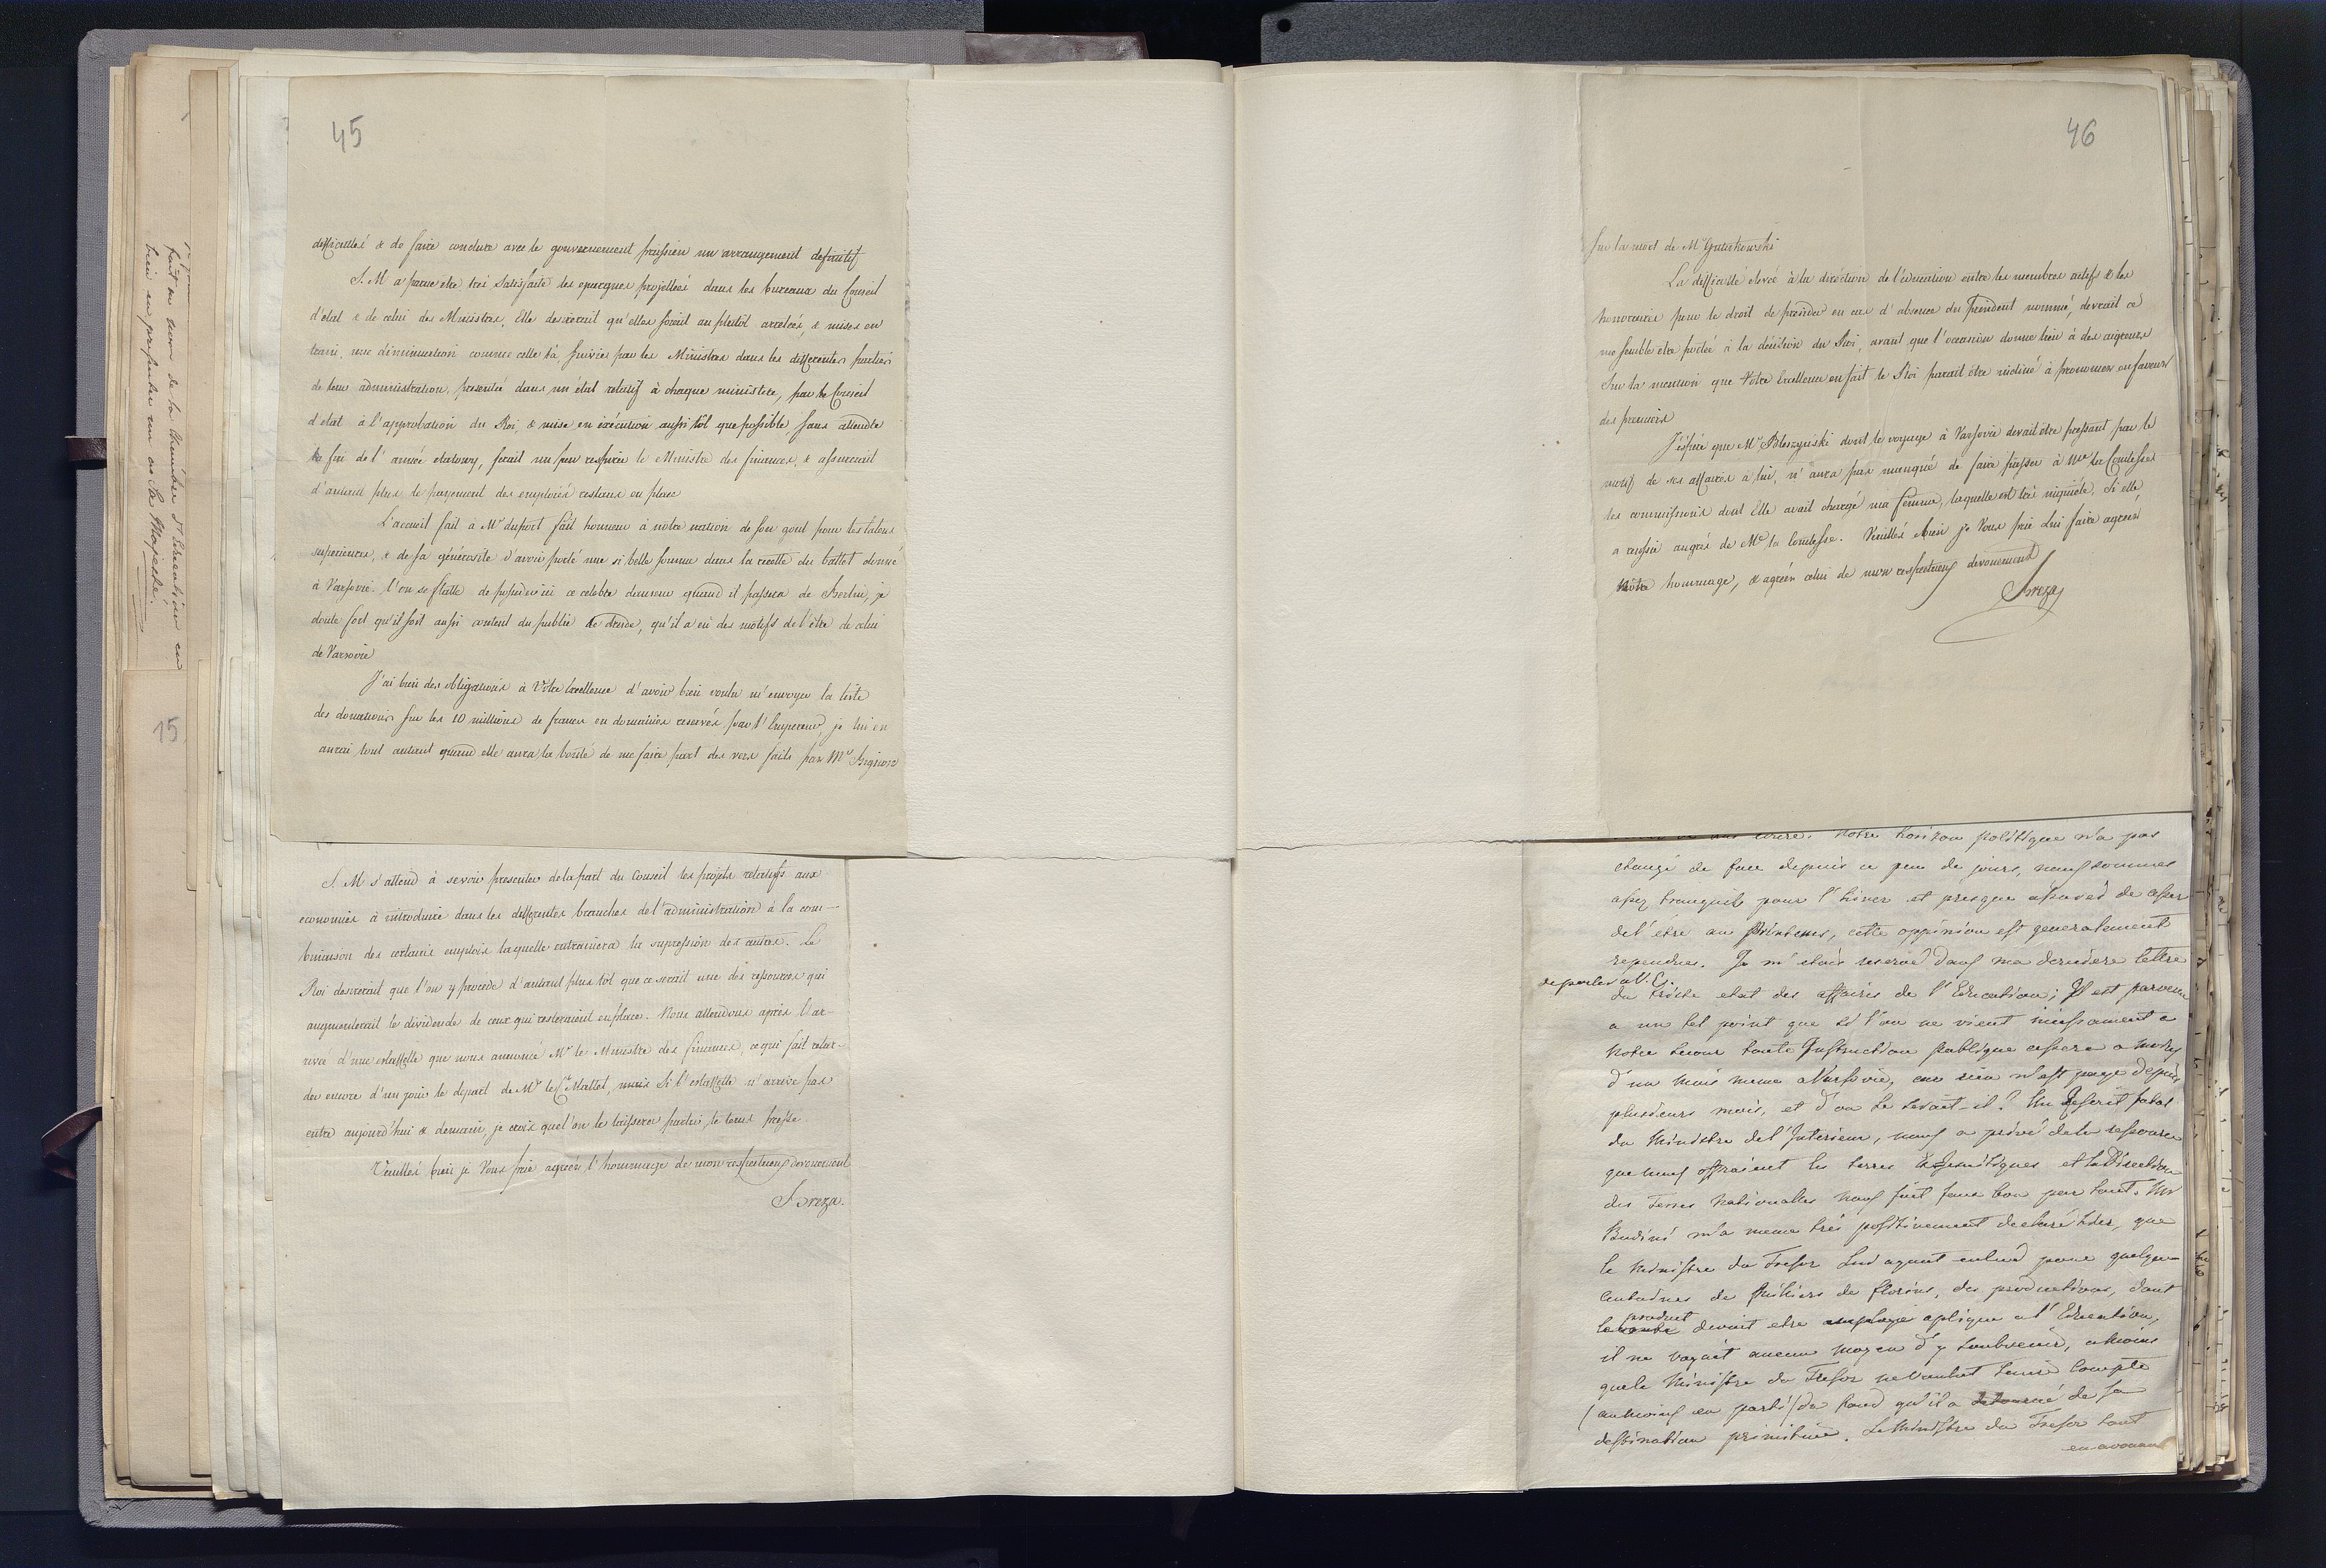 45
difficultés & de faire conclure avec le gouvernement prussien un arrangement definitif
S. M a parue etre très satisfaite des epargnes projettées dans les bureaux du Conseil
d'etat & de celui des Ministres, Elle desirerait qu'elles soient au plutôt arretées, & mises en
train, une diminution comme celle là, suivie par les Ministres dans les differentes parties
de leur administration, presentée dans un état relatif à chaque ministere, par le Conseil
d'etat à l'approbation du Roi, & mise en exécution aussi tôt que possible sans attendre
la fin de l'année, ferait un peu respirer le Ministre des finances, & assurerait
d'autant plus le payement des employés restans en place
L'accueil fait à Mr duport fait honneur à notre nation de son gout pour les talens
superieures, & de sa générosité d'avoir porté une si belle somme dans la recette du ballet donné
à Varsovie. l'on se flatte de posseder ici ce celebre danseur quand il passera de Berlin, je
doute fort qu'il soit aussi content du public de dresde, qu'il a eu des motifs de l'être de celui
de Varsovie
J'ai bien des obligations à Votre Excellence d'avoir bien voulu m'envoyer la liste
des donations sur les 20 millions de francs en domaines reservés par l'Empereur, je lui en
aurai tout autant quand elle aura la bonté de me faire part des vers faits par Mr Bignon
S. M s'attend à se voir presenter de la part du Conseil les projets relatifs aux
economies à introduire dans les differentes branches de l'administration à la com-
binaison des certains emplois laquelle entrainera la supression des autres. Le
Roi desirerait que l'on y procede d'autant plus tôt que ce serait une des ressources qui
augmenterait le dividende de ceux qui resteraient en place. Nous attendons après l'ar-
rivée d'une estaffette que nous annoncé Mr le Ministre des finances, ce qui fait retar-
der encore d'un jour le depart de Mr le Cte Mallet, mais si l'estaffette n'arrive pas
entre aujourd'hui & demain, je crois que l'on le laissera partir, le tems presse
Veuillés bien je Vous prie agréer l'hommage de mon respectueux devouement
Breza.
46
sur la mort de Mr Gutakowski
La difficulté elevée à la direction de l'education entre les membres actifs & les
honoraires pour le droit de presider en cas d'absence du President nommé, devrait ce
me semble etre portée à la décision du Roi, avant que l'occasion donne lieu à des aigreurs
Sur la mention que Votre Excellence en fait le Roi parait être incliné à prononcer en faveur
des premiers
J'espère que Mr Bleszynski dont le voyage à Varsovie devait être pressant par le
motif de ses affaires à lui, n'aura pas manqué de faire passer à Mme la Comtesse
les commissions dont Elle avait chargé ma femme, laquelle est très inquiéte, si elle
a reussi au gré de Me la Comtesse. Veuillés bien je Vous prie Lui faire agréer
nôtre hommage, & agréer celui de mon respectueux devouement
Breza
Notre horizon politique n'a pas
changé de face depuis ce peu de jours, nous sommes
assez tranquils pour l'hiver et presque assurés de cesser
de l'etre au Printems, cette oppinion est generalement
rependue. Je m'etais reservé dans ma derniere lettre
de parler a V. E.
du triste etat des affaires de l'Education; Il est parvenu
a un tel point que si l'on ne vient incessament a
notre secour toute Instruction publique cessera a moins
d'un mois meme a Varsovie, car rien n'est payé depuis
plusieurs mois, et d'ou le serait-il? Un Rescrit fatal
du Ministre de l'Interieur, nous a privé de la ressource
que nous offraient les terres Exjesuitiques et la Direction
des Terres Nationales nous fait faux bon par tout. Mr
m'a meme très positivement declaré hier, que
le Ministre du Tresor lui ayant enlevé pour quelque
centaines de milliers de florins, des productions, dont
produit
le devait etre employé apliqué a l'Education,
il ne voyait aucun moyen d'y subvenir, a moins
que le Ministre du Tresor ne voulut tenir compte
(au moins en parti) du fond qu'il a detourné de sa
destination primitive. Le Ministre du Tresor tout
en avouant
fait en leur de la Chambre d'Education en
bien en presenter un a Sa Majesté.
15